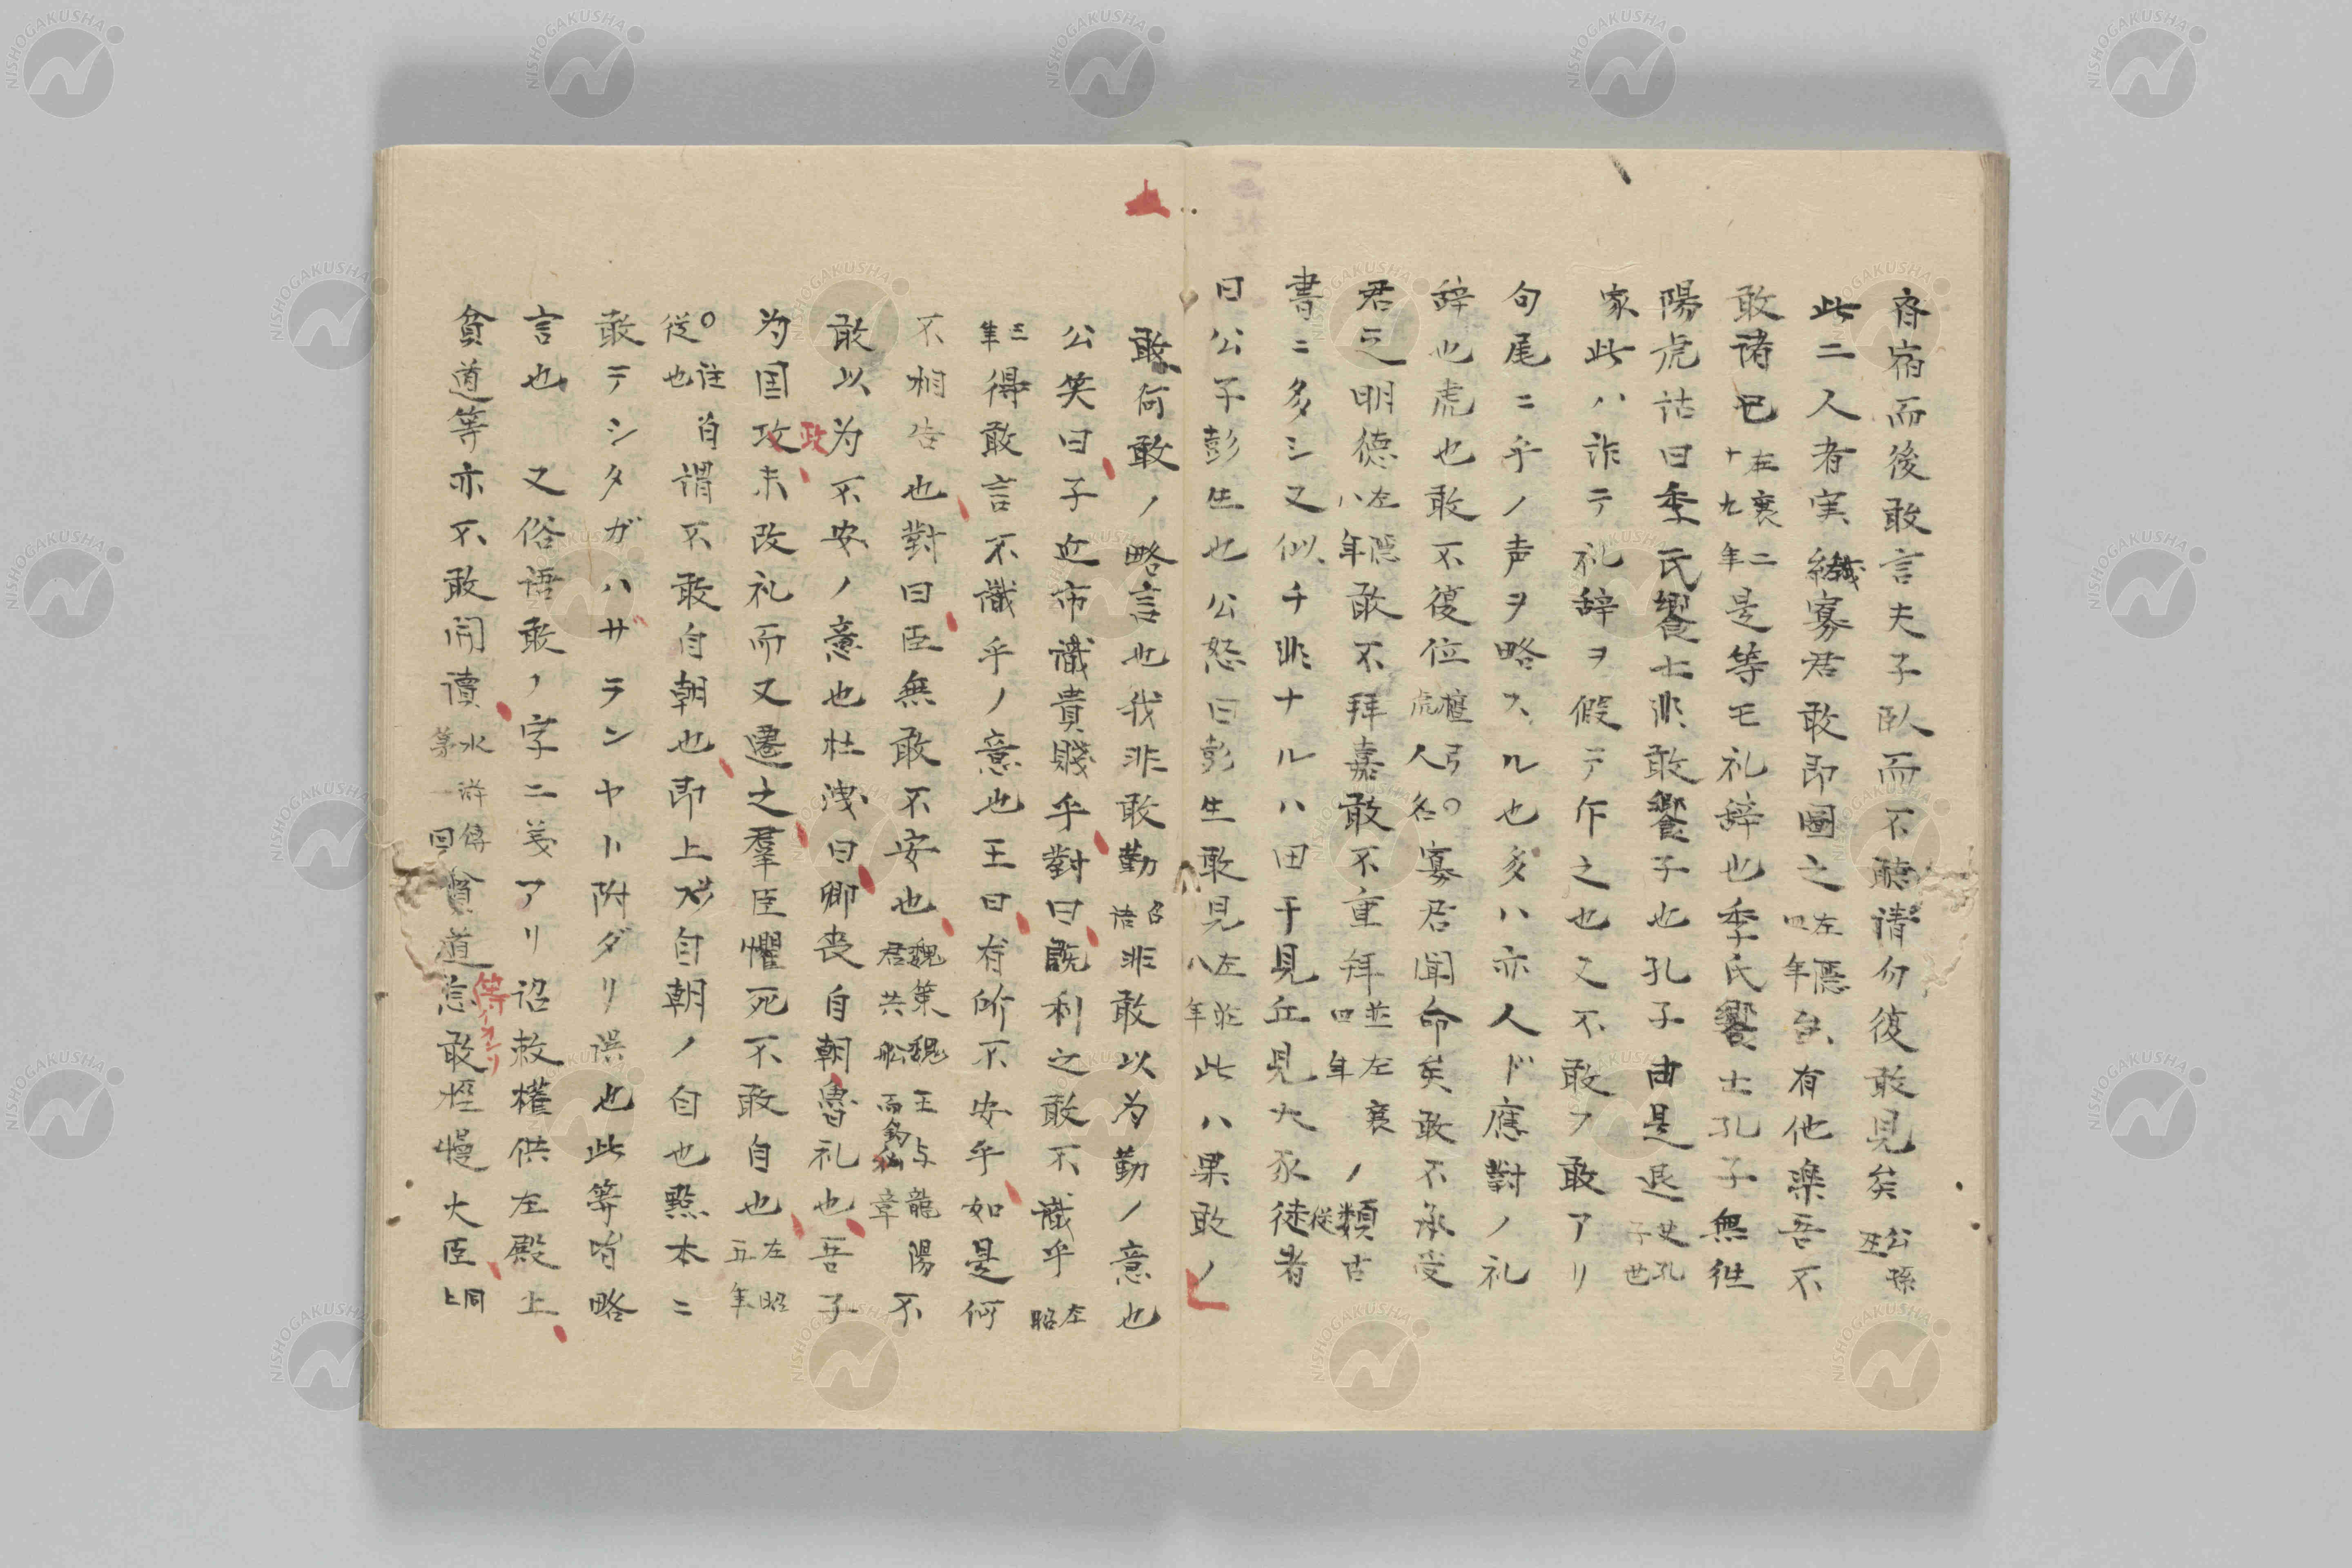 斉宿而後敢言夫子臥而不聽請勿復敢見矣 公孫丑
此二人者実幾寡君敢即圖之 左隱四年 豈有他楽吾不
敢諸已 左襄二十九年 是等モ礼辞也季氏饗士孔子無徃
陽虎詁曰季氏饗士非敢饗子也孔子由是退 史孔子世
家 此ハ詐テ礼辞ヲ假テ作之也又不敢ヲ敢アリ
句尾ニ乎ノ声ヲ略スル也多ハ亦人ド應對ノ礼
辞也虎也敢不復位 檀弓 虎人名 寡君聞命矣敢不承受
君之明德 左隱八年 敢不拜嘉敢不重拜 並左襄四年 ノ類古
書ニ多シ又似チ非ナルハ田于見丘見大豕從者
曰公子彭生也公怒曰彭生敢見 左莊八年 此ハ果敢ノ
敢何敢ノ略言也我非敢勤 召誥 非敢以为勤ノ意也
公笑曰子近市識貴賤乎對曰既利之敢不識乎 左昭
三年 得敢言不識乎ノ意也王曰有所不安乎如是何
不相告也對曰臣無敢不安也 魏策魏王与龍陽君共船而釣章 不
敢以为不安ノ意也杜洩曰卿喪自朝魯礼也吾子
为国政未改礼而又遷之羣臣懼死不敢自也 左昭五年
從也 注 自謂不敢自朝也即上ズ自朝ノ自也點本ニ
敢テシタガハザランヤト附ダリ誤也此等皆略
言也 又俗語敢ノ字ニ義アリ詔救權供左殿上
貧道等亦不敢開讀 水滸傳第一回 貧道等怎敢輕慢大臣 同上
政
等イオシリ